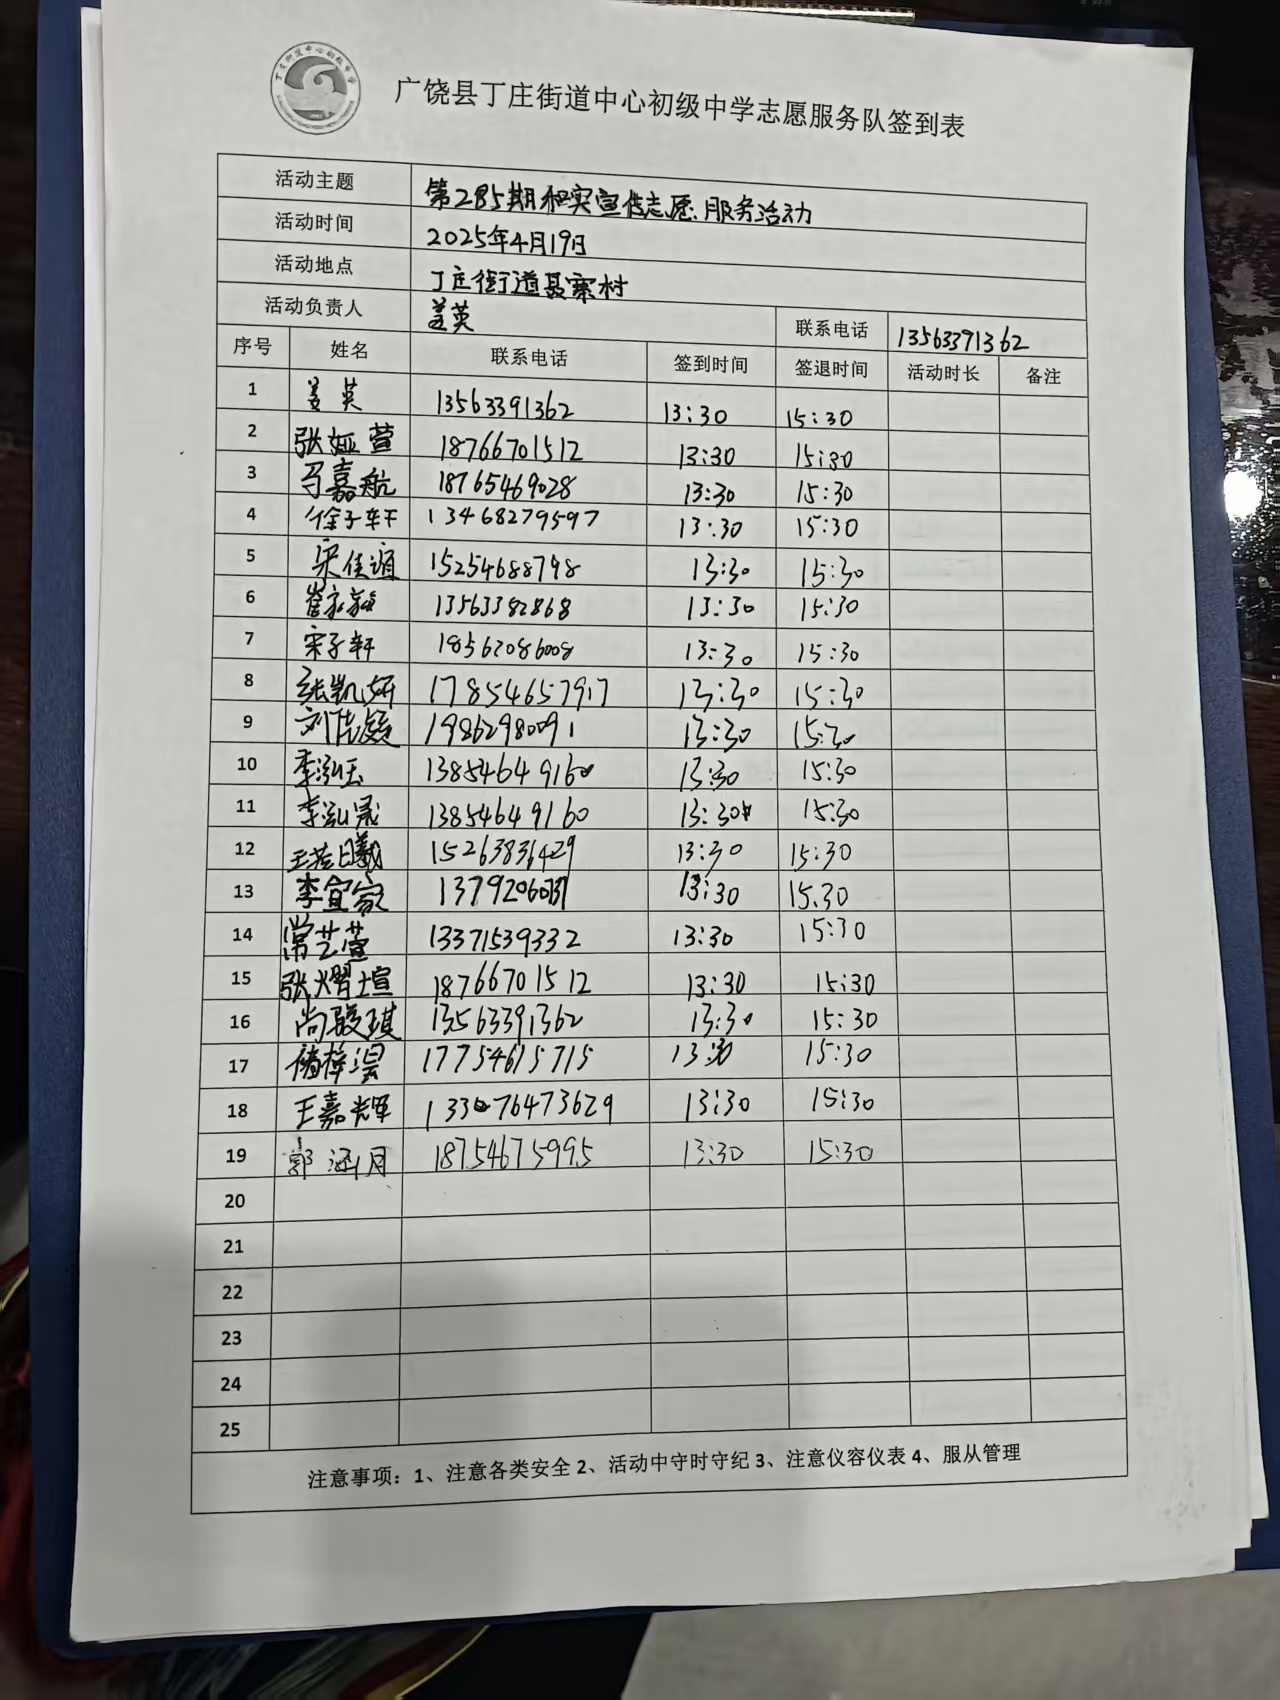 广饶县丁庄街道中心初级中学志愿服务队签到表
活动主题 第285期和实宣传志愿服务活动
活动时间 2025年4月19日
活动地点 丁庄街道聂寨村
活动负责人 姜英 联系电话 13563391362
序号 姓名 联系电话 签到时间 签退时间 活动时长 备注
1 姜英 13563391362 13:30 15:30
2 张娅萱 18766701512 13:30 15:30
3 嘉航 18765469028 13:30 15:30
4 徐子轩 13468279597 13:30 15:30
5 宋佳谊 15254688798 13:30 15:30
6 13563382868 13:30 15:30
7 宋子轩 18562086008 13:30 15:30
8 张凯妍 17854657917 13:30 15:30
9 19862980091 13:30 15:30
10 李泓玉 13854649160 13:30 15:30
11 李泓晟 13854649160 13:30 15:30
12 15263836429 13:30 15:30
13 李宜家 13:30 15.30
14 常艺萱 13371539332 13:30 15:30
15 张熠煊 18766701512 13:30 15:30
16 尚骏琪 13563391362 13:30 15:30
17 17754615715 13:30 15:30
18 王嘉辉 13:30 15:30
19 郭涵月 18754675995 13:30 15:30
20
21
22
23
24
25
注意事项：1、注意各类安全 2、活动中守时守纪 3、注意仪容仪表 4、服从管理